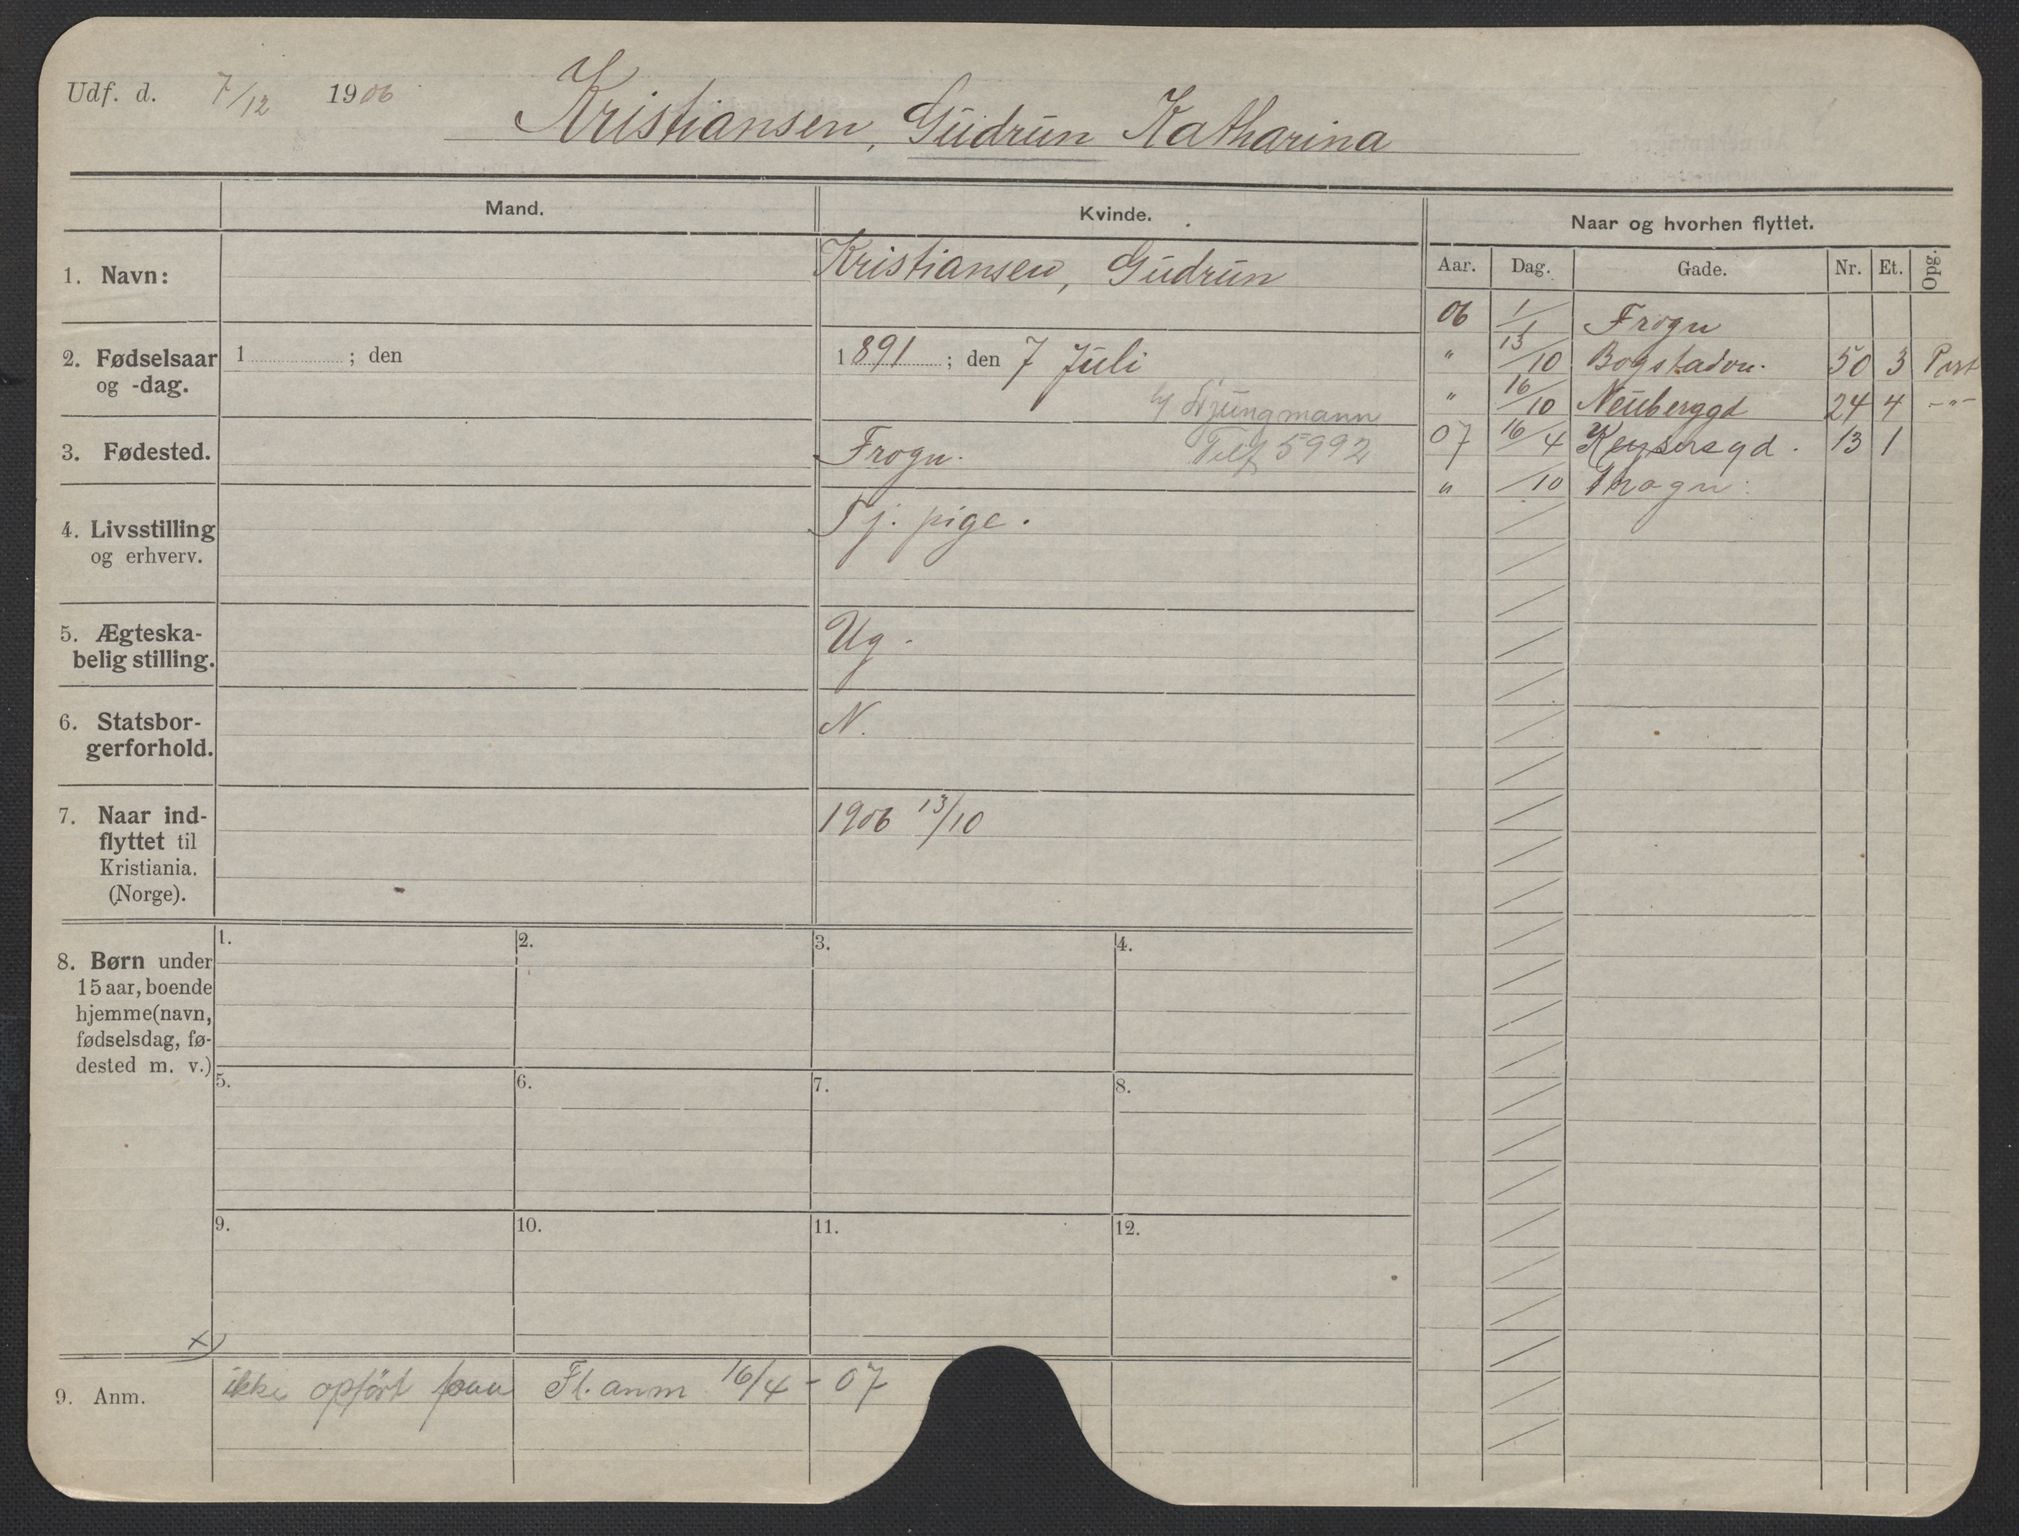 Udf. d. 7/12 1906
Kristiansen, Gudrun Katharina
Mand. Kvinde. Naar og hvorhen flyttet.
Aar. Dag. Gade. Nr. Et. Opg.
1. Navn: Kristiansen, Gudrun
2. Fødselsaar og -dag. 1 ; den 1891 ; den 7 Juli
3. Fødested. Frogn.
Telf 5992
4. Livsstilling og erhverv. Tj. pige.
5. Ægteska-
belig stilling. Ug.
6. Statsbor-
gerforhold. N.
7. Naar ind-
flyttet til
Kristiania.
(Norge). 1906 13/10
06 1/1 Frogn
" 13/10 Bogstadvn. 50 3 Port
" 16/10 Neuberggd 24 4 -"-
07 16/4 Keysersgd. 13 1
" /10 Frogn.
8. Børn under
15 aar, boende
hjemme (navn,
fødselsdag, fø-
dested m. v.)
1. 2. 3. 4.
5. 6. 7. 8.
9. 10. 11. 12.
x)
9. Anm. ikke opført paa Fl. anm 16/4 - 07